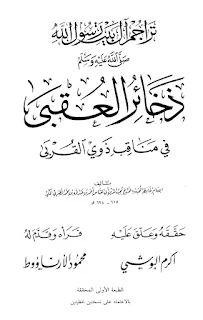 تراجم آل بيت رسول الله
صلى الله عليه وسلم
ذخائر العقبى
في مناقب ذوي القربى
تأليف
٦١٥ - ٦٩٤ هـ
حققه وعلق عليه
قرأه وقدم له
أكرم البوشي
محمود الأرناؤوط
الطبعة الأولى المحققة
بالاعتماد على نسختين خطيتين